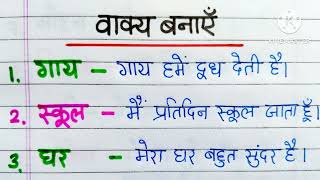 वाक्य बनाएँ
1. गाय – गाय हमें दूध देती है।
2. स्कूल – मैं प्रतिदिन स्कूल जाता हूँ।
3. घर – मेरा घर बहुत सुंदर है।